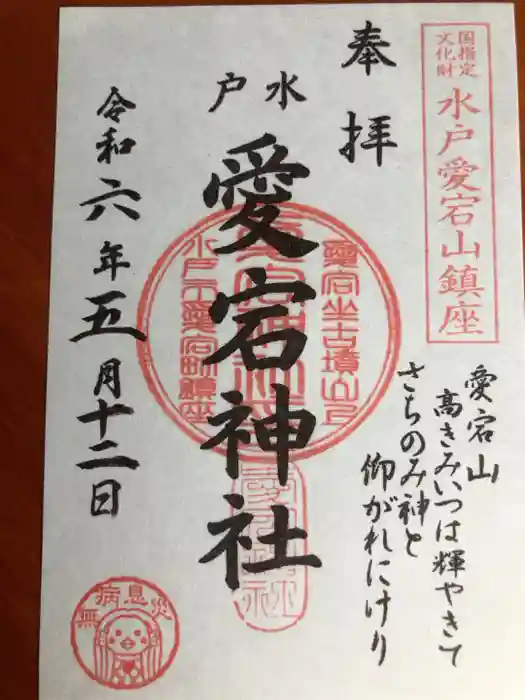 国指定
文化財
水戸愛宕山鎮座
奉拝
水戸
愛宕神社
令和六年五月十二日
愛宕山
高きみいつは輝やきて
さちのみ神と
仰がれにけり
愛宕坐古墳山上
水戸市愛宕町鎮座
無病息災